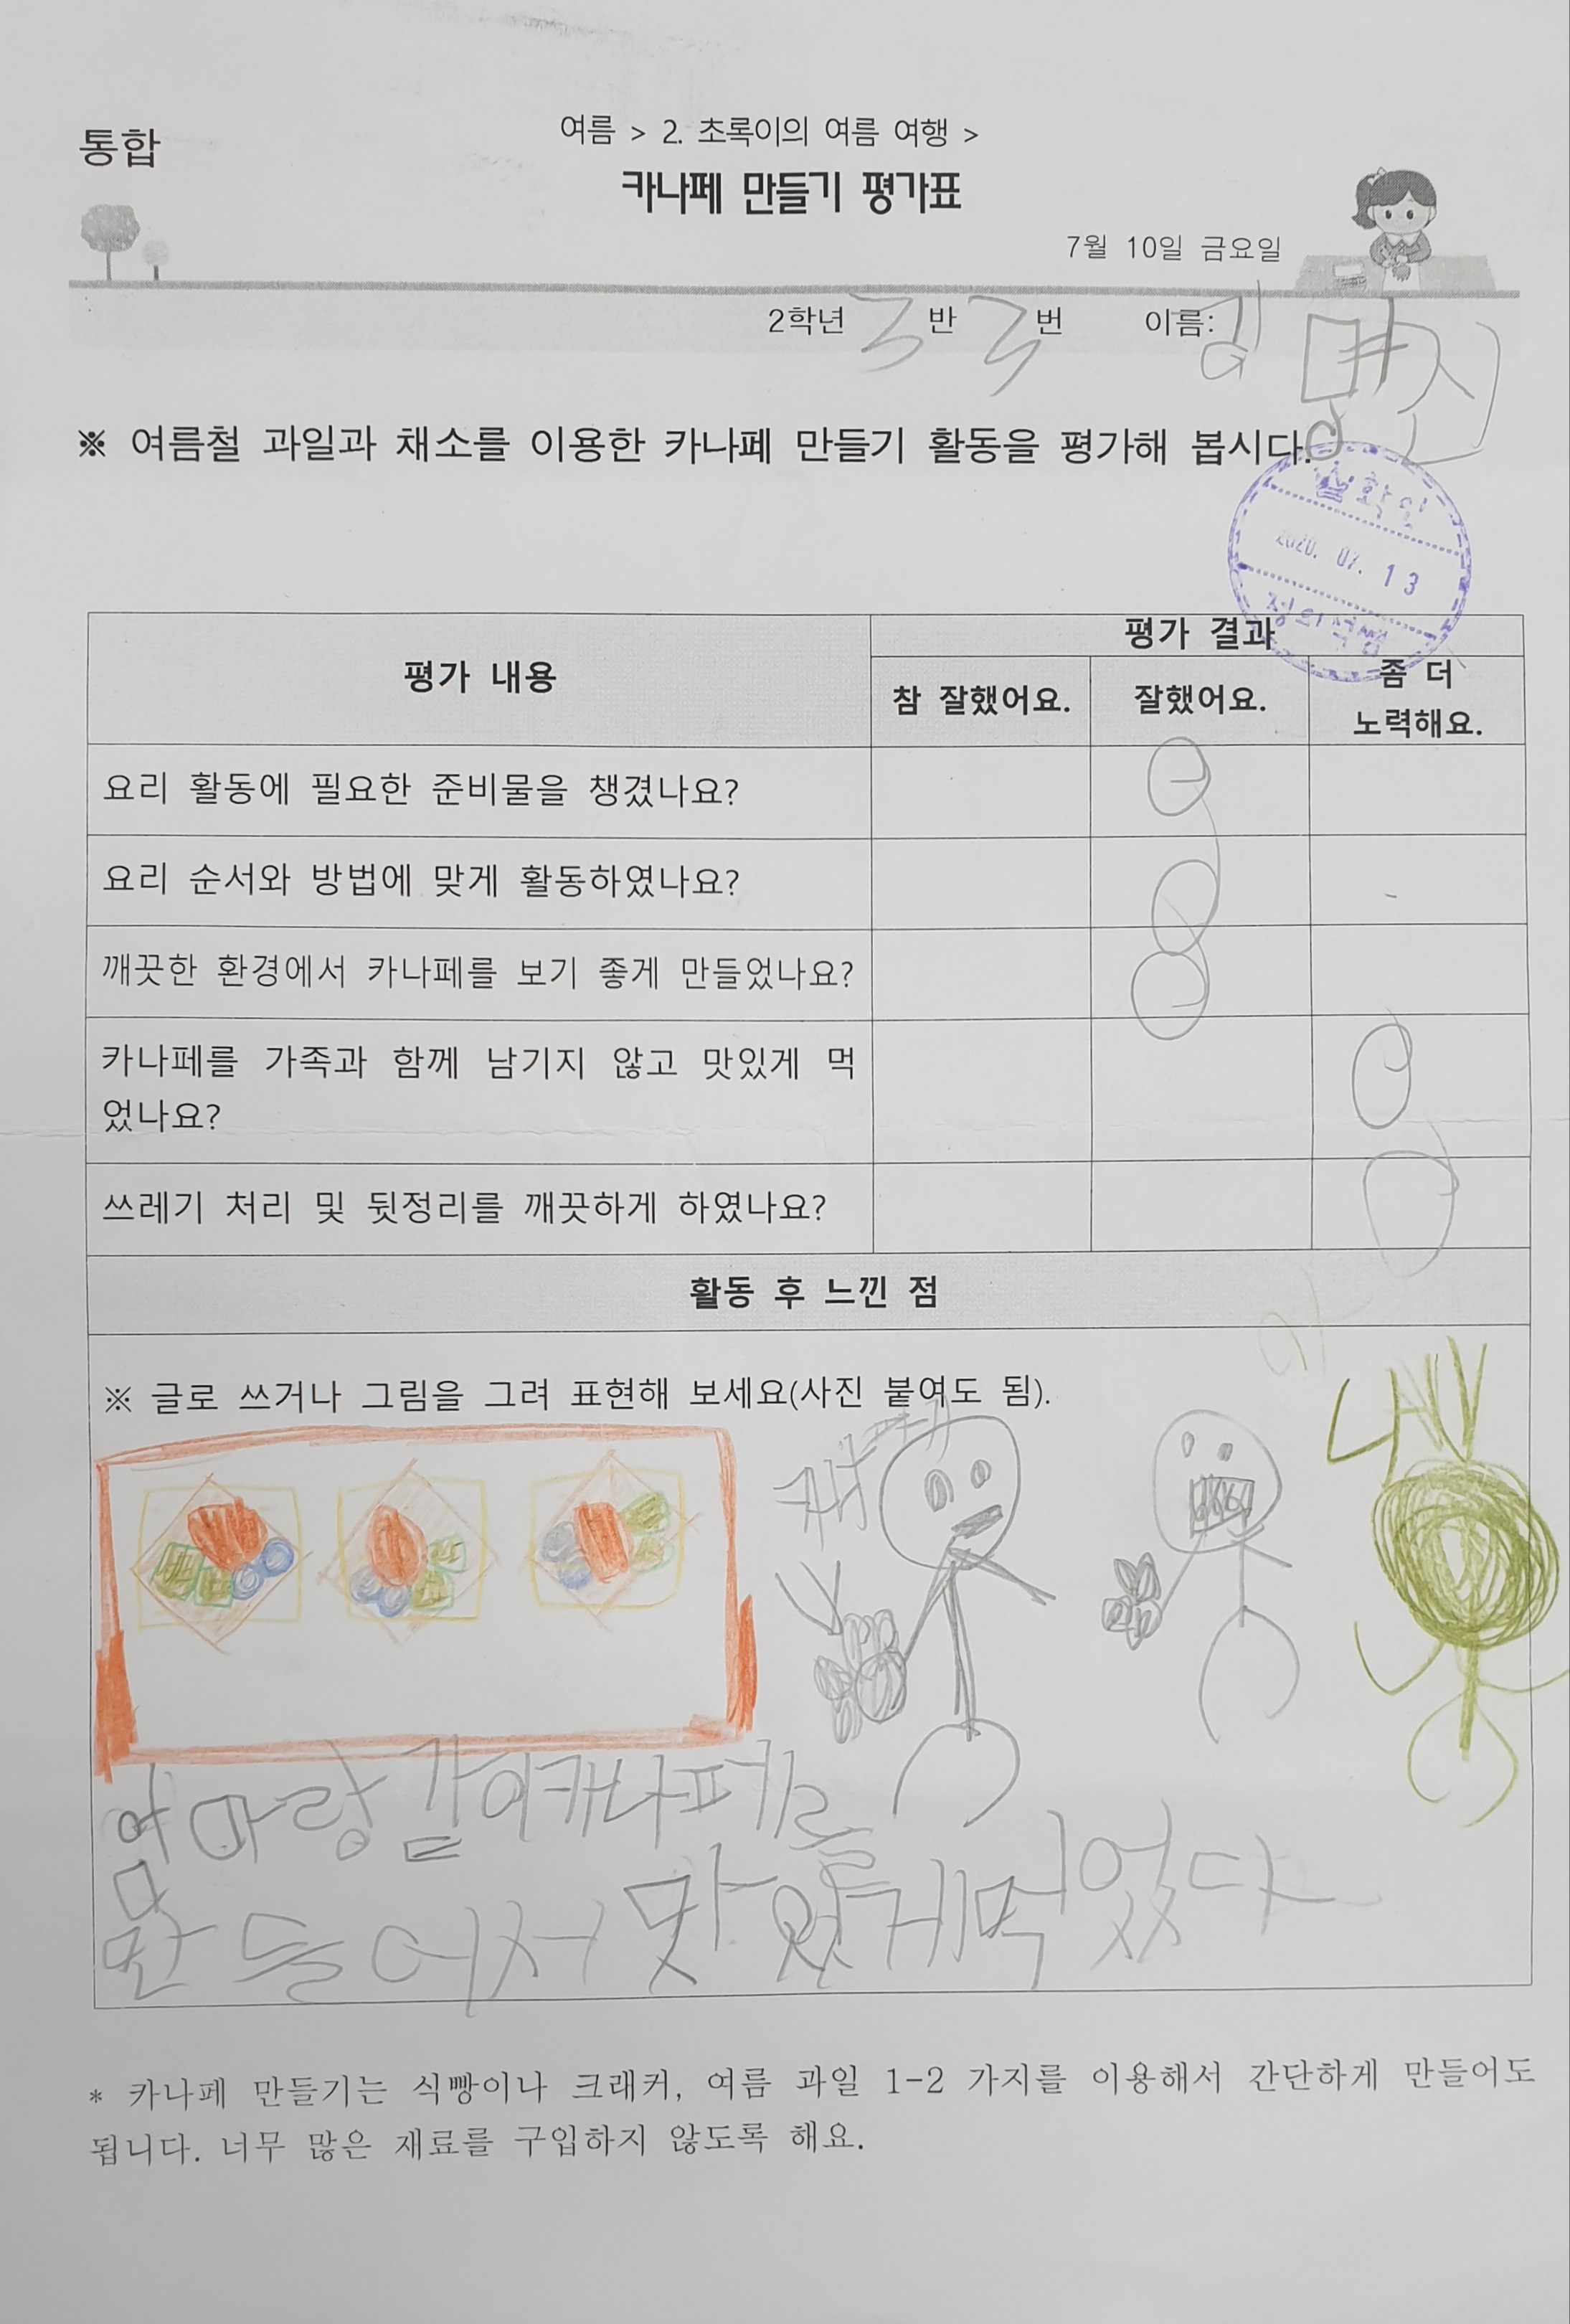 통합
여름 > 2. 초록이의 여름 여행 >
카나페 만들기 평가표
7월 10일 금요일
2학년 3 반 3 번 이름: 김명진
※ 여름철 과일과 채소를 이용한 카나페 만들기 활동을 평가해 봅시다.
확인
2020. 07. 13
평가 내용
평가 결과
참 잘했어요.
잘했어요.
좀 더
노력해요.
요리 활동에 필요한 준비물을 챙겼나요?
요리 순서와 방법에 맞게 활동하였나요?
깨끗한 환경에서 카나페를 보기 좋게 만들었나요?
카나페를 가족과 함께 남기지 않고 맛있게 먹
었나요?
쓰레기 처리 및 뒷정리를 깨끗하게 하였나요?
활동 후 느낀 점
※ 글로 쓰거나 그림을 그려 표현해 보세요(사진 붙여도 됨).
엄마랑 같이 카나페를
만들어서 맛있게 먹었다
* 카나페 만들기는 식빵이나 크래커, 여름 과일 1-2 가지를 이용해서 간단하게 만들어도
됩니다. 너무 많은 재료를 구입하지 않도록 해요.